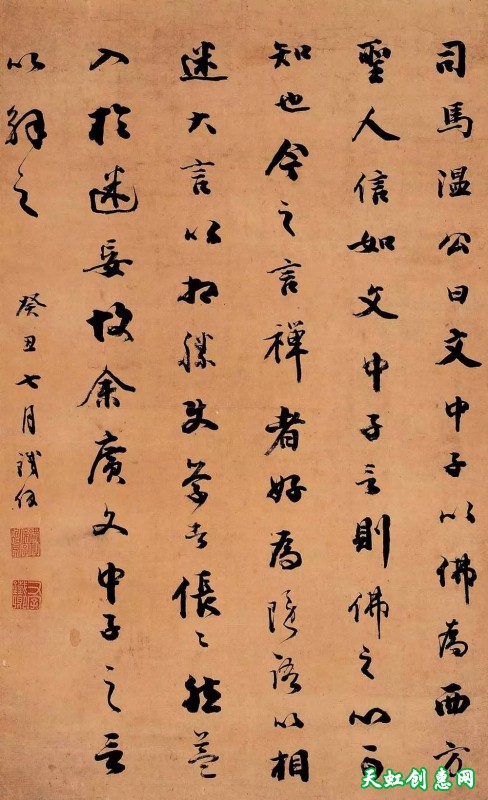 司馬温公曰文中子以佛為西方
聖人信如文中子言則佛之心可
知也今之言禅者好為隠語以相
迷大言以相勝使学者倀〻然益
入於迷妄故余廣文中子之言
以解之
癸丑七月鐵保
天虹创意网